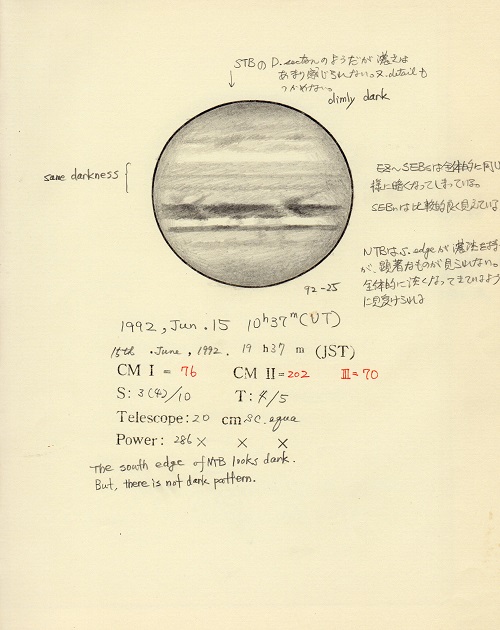 STBのD.sectionのようだが濃さは
あまり感じられない。又、detailも
つかめない。
dimly dark
same darkness
EZ〜SEBsは全体的に同じ
様に暗くなってしまっている。
SEBnは比較的良く見えている
NTBはS.edgeが濃
が、顕著なものが見られない。
全体的に淡くなってきているよう
に見受けられる
92-25
1992, Jun. 15 10h37m(UT)
15th. June, 1992. 19 h37 m (JST)
CM I = 76 CM II = 202 III = 70
S: 3(4)/10 T: 4/5
Telescope: 20 cm S.C.
Power: 286× × ×
The south edge of NTB looks dark.
But, there is not dark pattern.